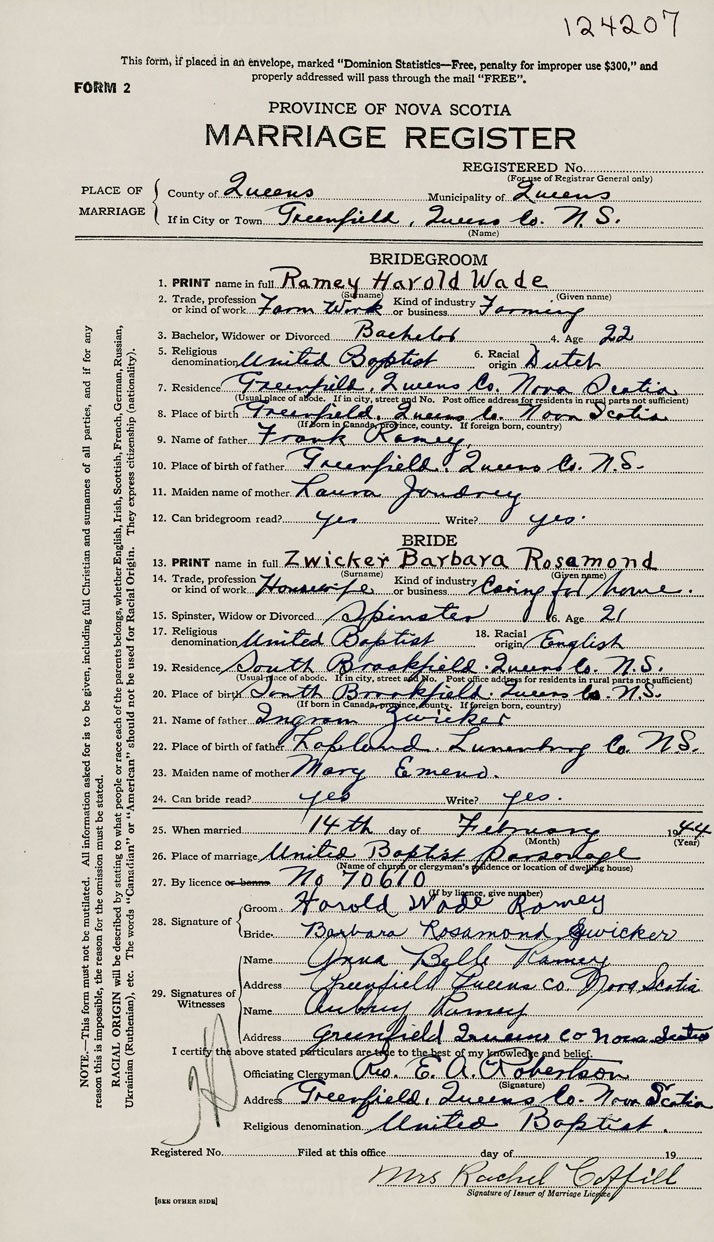 124207
This form, if placed in an envelope, marked "Dominion Statistics—Free, penalty for improper use $300," and
properly addressed will pass through the mail "FREE".
FORM 2
PROVINCE OF NOVA SCOTIA
MARRIAGE REGISTER
REGISTERED No.
(For use of Registrar General only)
PLACE OF MARRIAGE
County of Queens Municipality of Queens
If in City or Town Greenfield, Queens Co. N.S.
(Name)
BRIDEGROOM
1. PRINT name in full Ramey Harold Wade
(Surname) (Given name)
2. Trade, profession or kind of work Farm Work Kind of industry or business Farming
3. Bachelor, Widower or Divorced Bachelor 4. Age 22
5. Religious denomination United Baptist 6. Racial origin Dutch
7. Residence Greenfield, Queens Co. Nova Scotia
(Usual place of abode. If in city, street and No. Post office address for residents in rural parts not sufficient)
8. Place of birth Greenfield, Queens Co. Nova Scotia
(If Born in Canada, province, county. If foreign born, country)
9. Name of father Frank Ramey
10. Place of birth of father Greenfield, Queens Co. N.S.
11. Maiden name of mother Laura Joudrey
12. Can bridegroom read? yes Write? yes.
BRIDE
13. PRINT name in full Zwicker Barbara Rosamond
(Surname) (Given name)
14. Trade, profession or kind of work Housewife Kind of industry or business Caring for home.
15. Spinster, Widow or Divorced Spinster 16. Age 21
17. Religious denomination United Baptist 18. Racial origin English
19. Residence South Brookfield. Queens Co. N.S.
(Usual place of abode. If in city, street and No. Post office address for residents in rural parts not sufficient)
20. Place of birth South Brookfield. Queens Co. N.S.
(If born in Canada, province, county. If foreign born, country)
21. Name of father Ingram Zwicker
22. Place of birth of father Lapland. Lunenburg Co. N.S.
23. Maiden name of mother Mary
24. Can bride read? yes Write? yes.
25. When married 14th day of February 1944
(Month) (Year)
26. Place of marriage United Baptist parsonage
(Name of church or clergyman's residence or location of dwelling house)
27. By licence or banns No 70610
(If by licence, give number)
28. Signature of
Groom Harold Wade Ramey
Bride Barbara Rosamond Zwicker
29. Signatures of Witnesses
Name Anna Belle Ramey
Address Greenfield Queens co. Nova Scotia
Name Aubrey Ramey
Address Greenfield Queens co Nova Scotia
I certify the above stated particulars are true to the best of my knowledge and belief.
Officiating Clergyman Rev. E. A. Robertson
(Signature)
Address Greenfield, Queens Co. Nova Scotia
Religious denomination United Baptist.
Registered No. Filed at this office day of 19
Mrs Rachel Coffill
Signature of Issuer of Marriage Licence
[SEE OTHER SIDE]
NOTE.—This form must not be mutilated. All information asked for is to be given, including full Christian and surnames of all parties, and if for any
reason this is impossible, the reason for the omission must be stated.
RACIAL ORIGIN will be described by stating to what people or race each of the parents belongs, whether English, Irish, Scottish, French, German, Russian,
Ukrainian (Ruthenian), etc. The words "Canadian" or "American" should not be used for Racial Origin. They express citizenship (nationality).